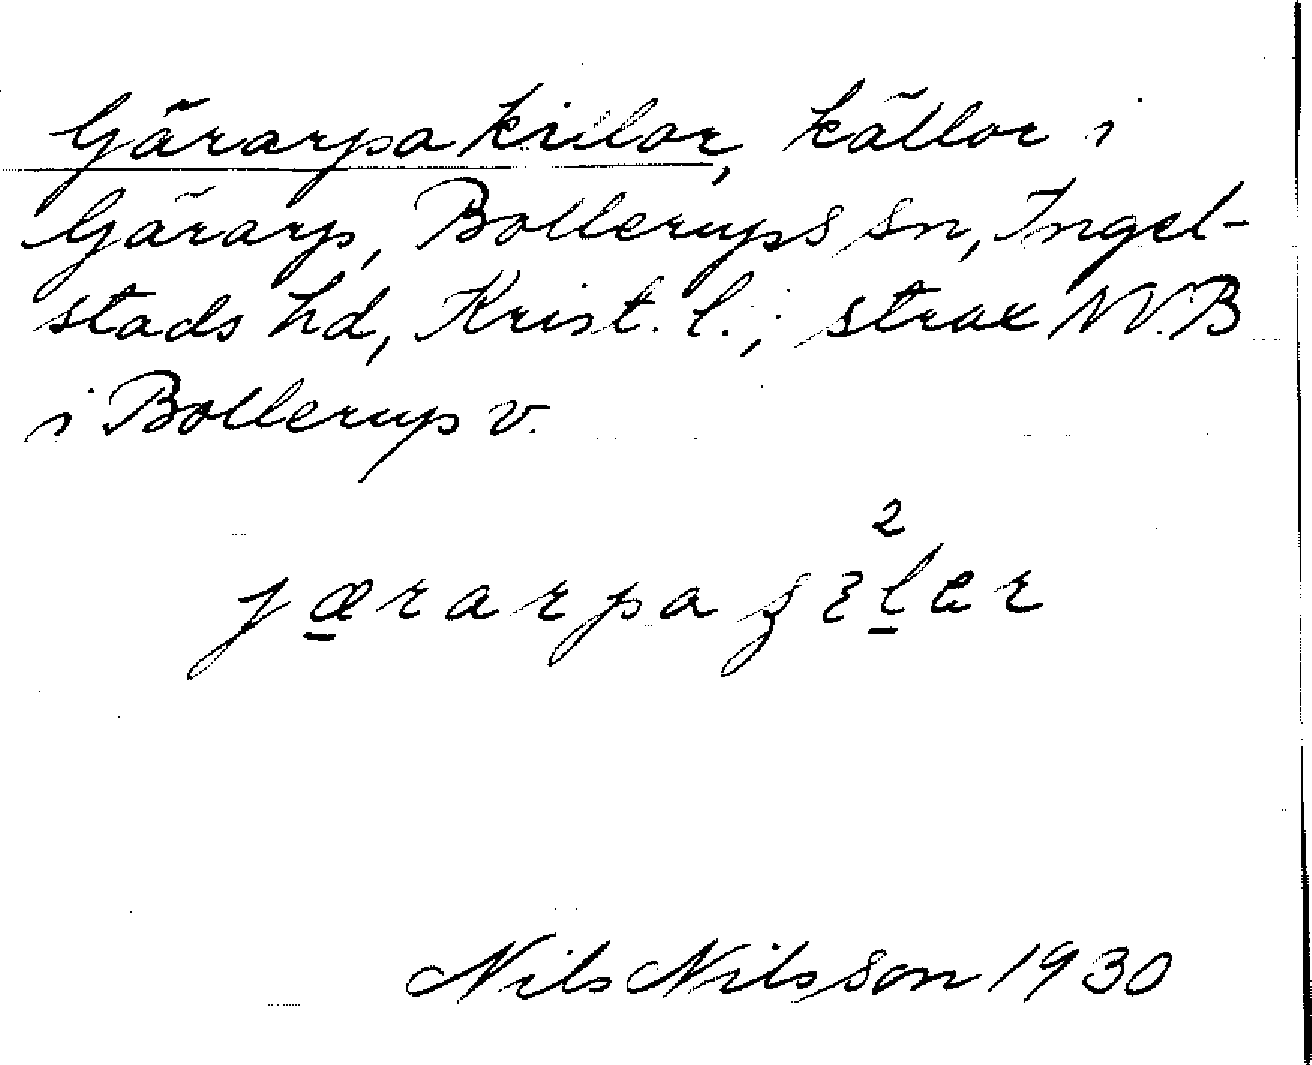 Gärarpa killor, källor i
Gärarp, Bollerups sn, Ingel-
stads hd, Krist. l.; strax NV. B
i Bollerup v.
2
Nils Nilsson 1930